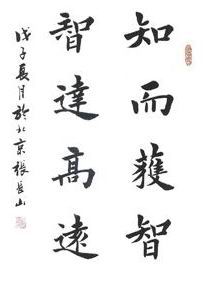 知而獲智
智達高遠
戊子夏月於北京張長山